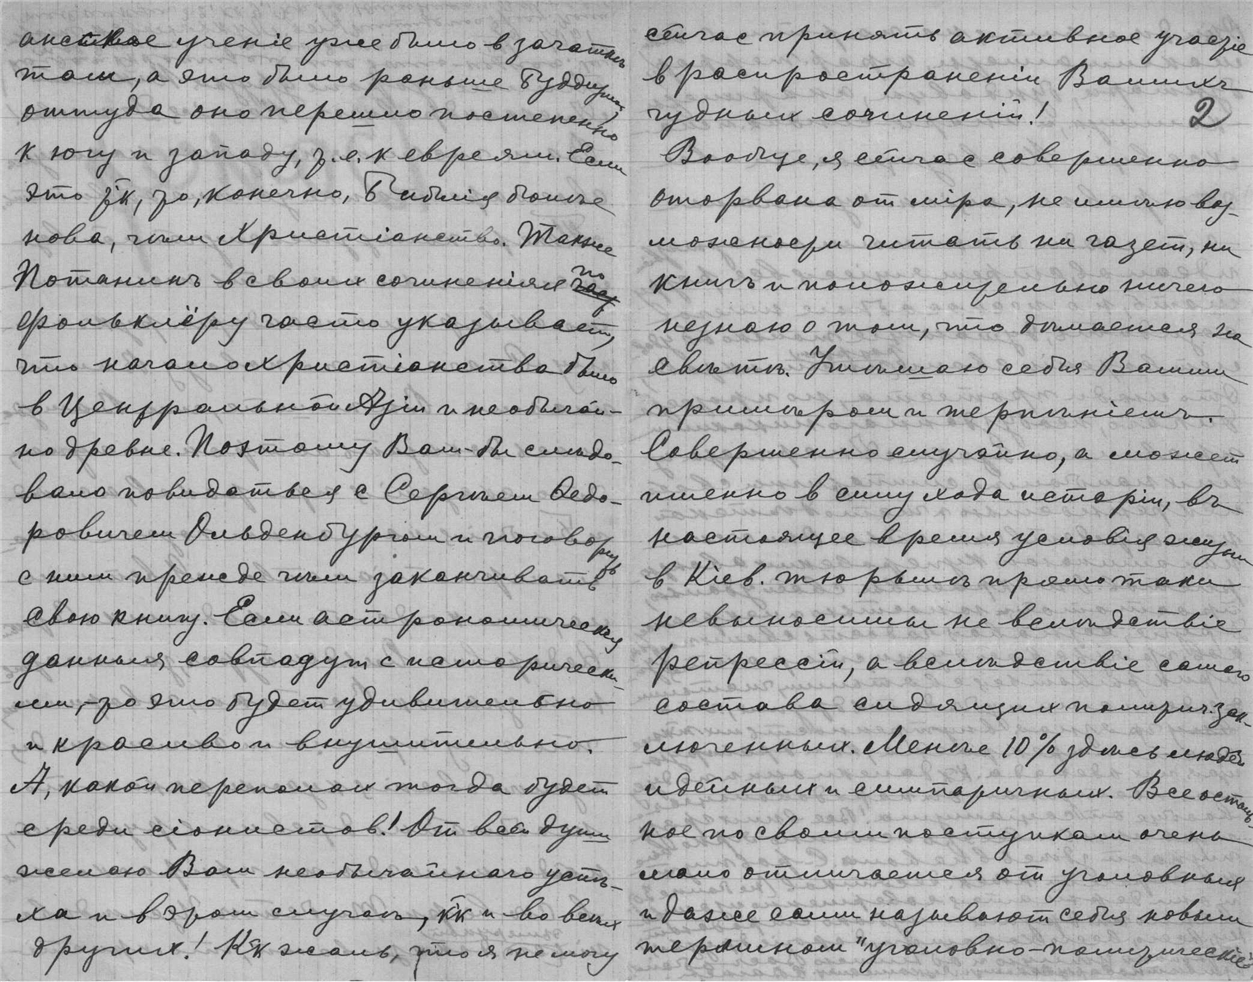 анское ученіе уже было в зачаткѣ
там, а это было раньше Буддизма,
оттуда оно перешло постепенно
к югу и западу, т.е. к евреям. Если
это так, то, конечно, Библія более
нова, чѣм Христіанство. Также
Потанинъ в своих сочиненіях по
фольклёру часто указывает,
что начало христіанства было
в Центральной Азіи и необычай-
но древне. Поэтому Вам-бы слѣдо-
вало повидаться с Сергѣем Ѳедо-
ровичем Ольденбургом и поговорить
с ним прежде чѣм заканчивать
свою книгу. Если астрономическія
данныя совпадут с исторически-
ми,-то это будет удивительно
и красиво и внушительно.
А, какой переполох тогда будет
среди сіонистов! От всей души
желаю Вам необычайнаго успѣ-
ха и в этом случаѣ, кк и во всѣх
других! Кк жаль, что я не могу
сейчас принять активное участіе
в распространеніи Вашихъ
чудных сочиненій! 2
Вообще, я сейчас совершенно
оторвана от міра, не имѣю воз-
можности читать ни газет, ни
книгъ и положительно ничего
незнаю о том, что дѣлается на
свѣтѣ. Утѣшаю себя Вашим
примѣром и терпѣніемъ.
Совершенно случайно, а может
именно в силу хода исторіи, въ
настоящее время условія жизни
в Кіев. тюрьмѣ прямо таки
невыносимы не вслѣдствіе
репрессій, а вслѣдствіе самого
состава сидящих политич. зак-
люченных. Менѣе 10% здѣсь людей
идейных и симпатичных. Все осталь-
ное по своим поступкам очень
мало отличается от уголовных
и даже сами называют себя новым
термином "уголовно-политическіе